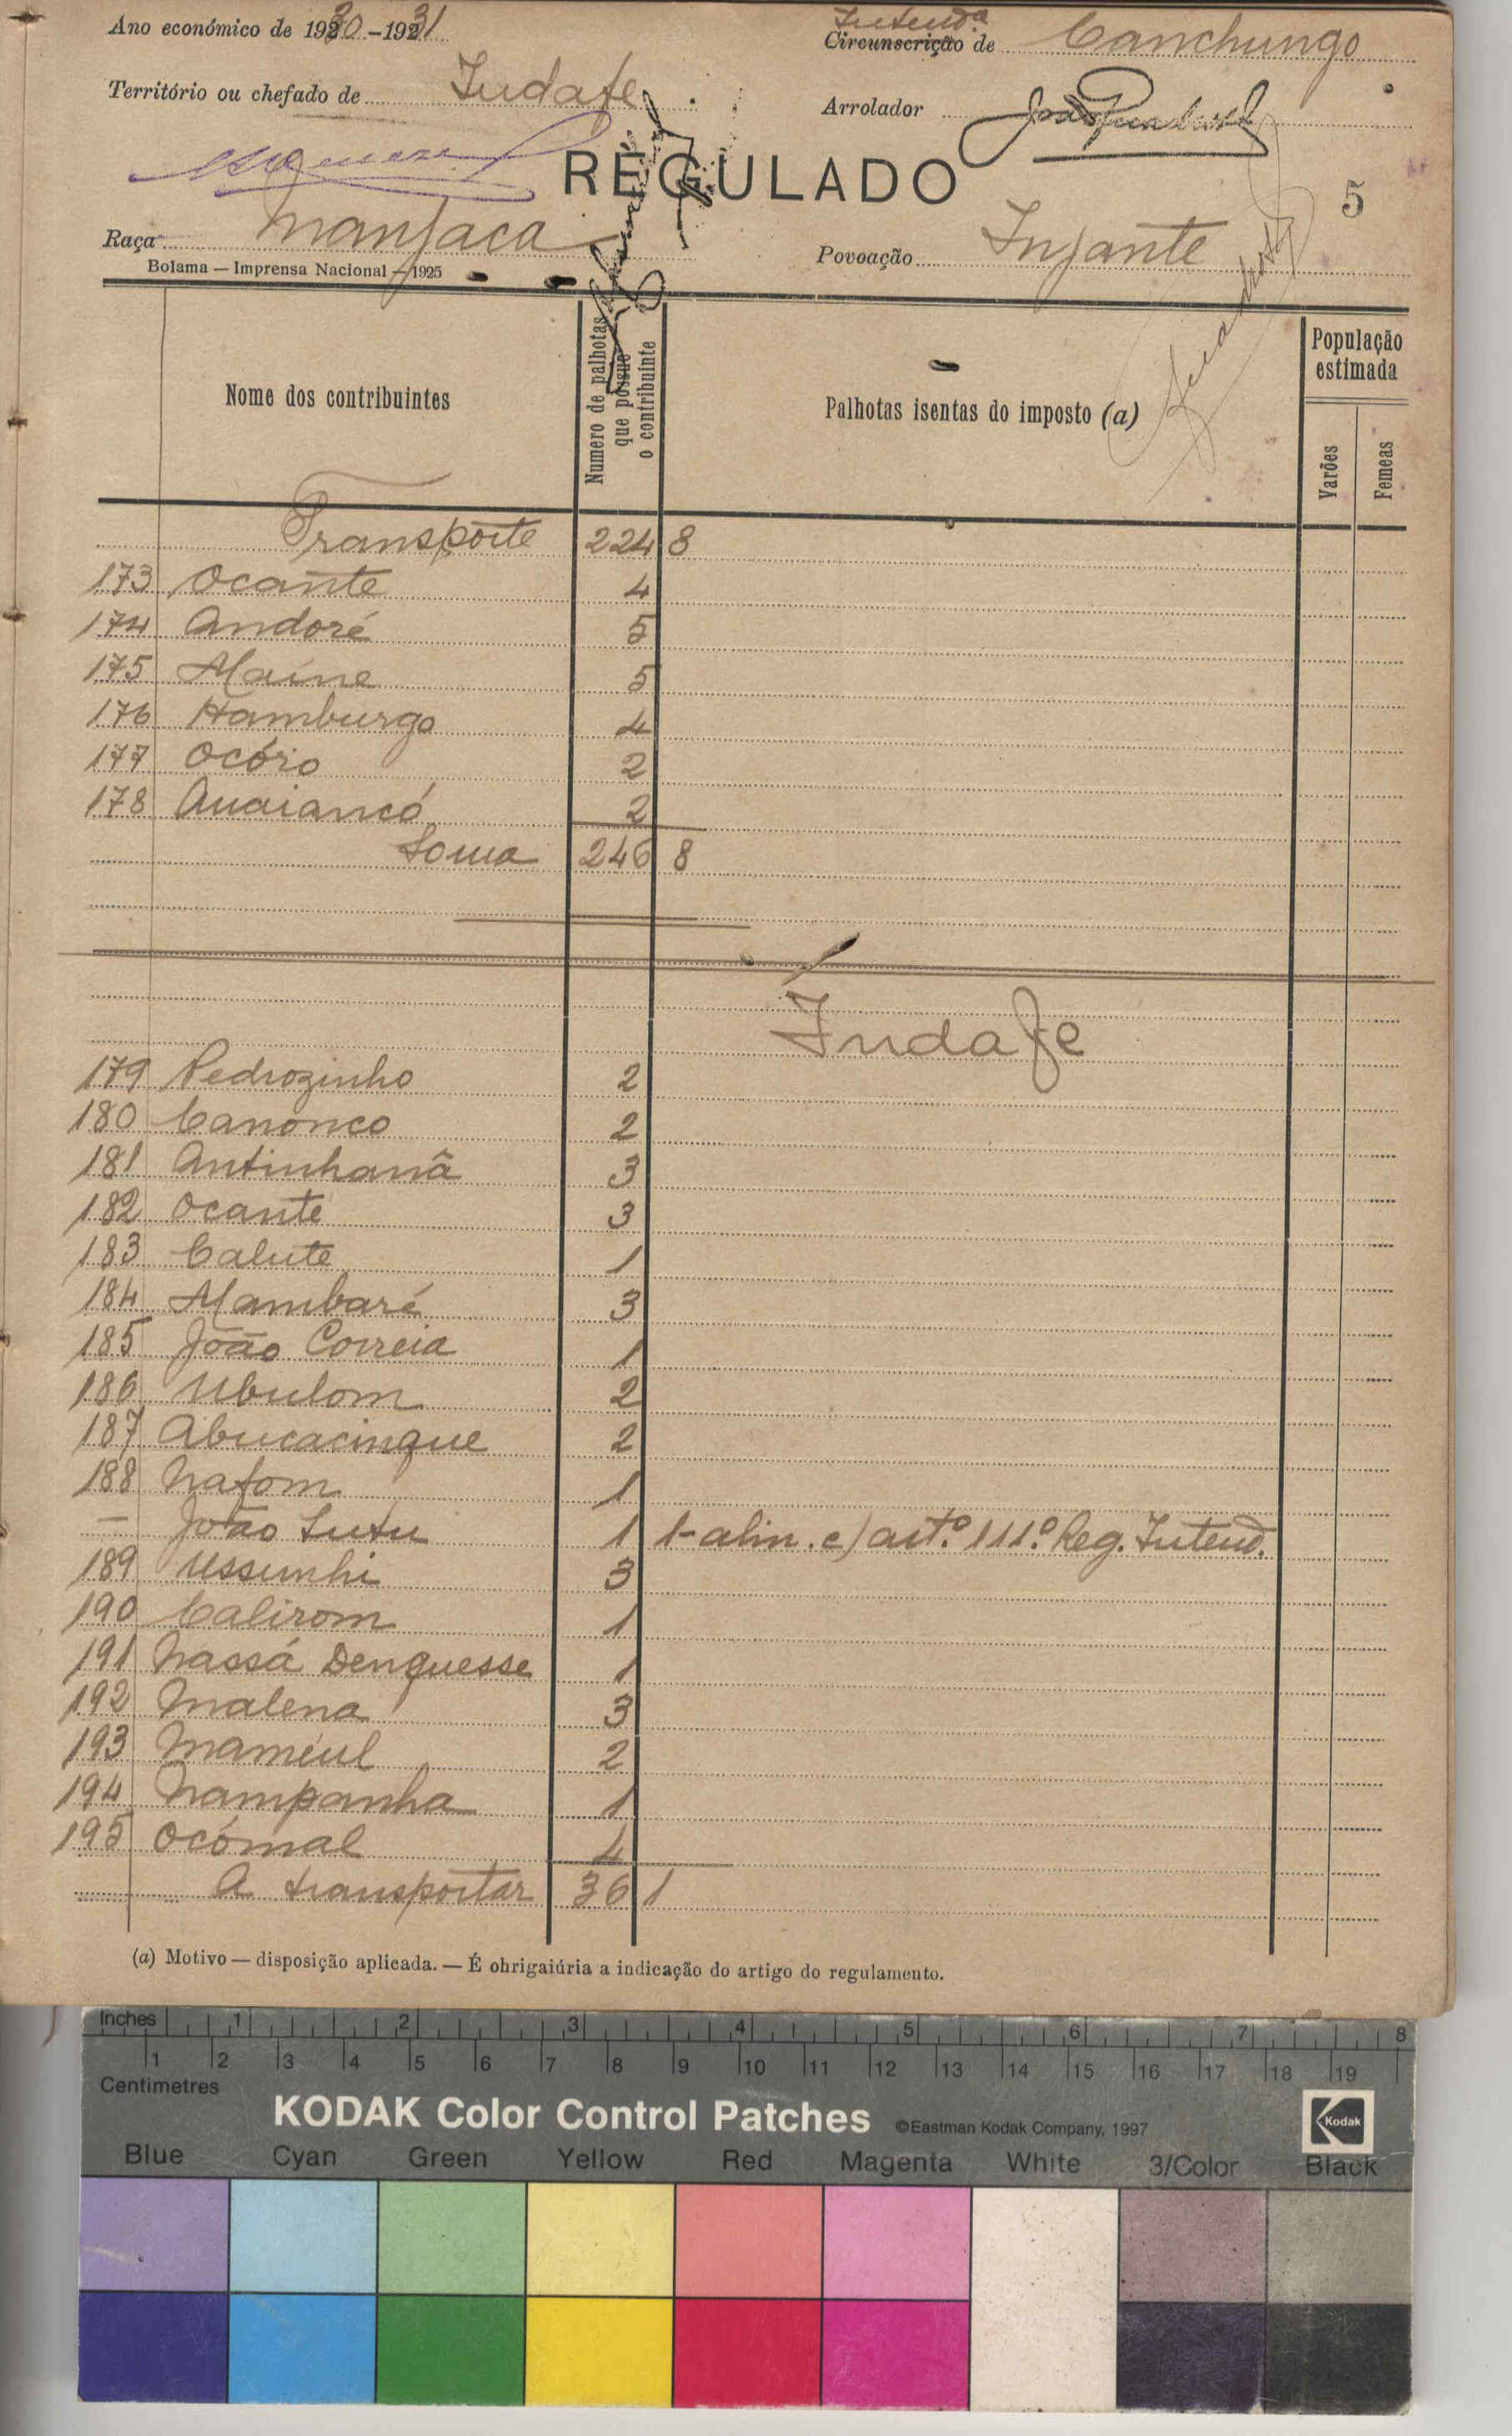 Ano económico de 1930-1931
Intenda
Circunscrição de Canchungo
Território ou chefado de Indafe
Arrolador
REGULADO
5
Raça Manjaca
Povoação Injante
Bolama — Imprensa Nacional — 1925
Nome dos contribuintes
Numero de palhotas
que possue
o contribuinte
Palhotas isentas do imposto (a)
População
estimada
Varões
Femeas
Transporte 224 8
173 Ocante 4
174 Andoré 5
175 Maine 5
176 Hamburgo 4
177 Ocóro 2
178 Auaiancó 2
Soma 246 8
Indafe
179 Pedrozinho 2
180 Canonco 2
181 Antinhanã 3
182 Ocante 3
183 Calute 1
184 Mambaré 3
185 João Correia 1
186 Ubulom 2
187 Abucacinque 2
188 Nafom 1
— João Sutu 1 1-alin. c) art.º 111.º Reg. Intend.
189 Ussunhi 3
190 Calirom 1
191 Nassá Denguesse 1
192 Malena 3
193 Maméul 2
194 Nampanha 1
195 Ocómal 4
A transportar 36 1
(a) Motivo — disposição aplicada. — É ohrigaiúria a indicação do artigo do regulamento.
Inches 1 2 3 4 5 6 7 8
1 2 3 4 5 6 7 8 9 10 11 12 13 14 15 16 17 18 19
Centimetres
KODAK Color Control Patches ©Eastman Kodak Company, 1997 Kodak
Blue Cyan Green Yellow Red Magenta White 3/Color Black